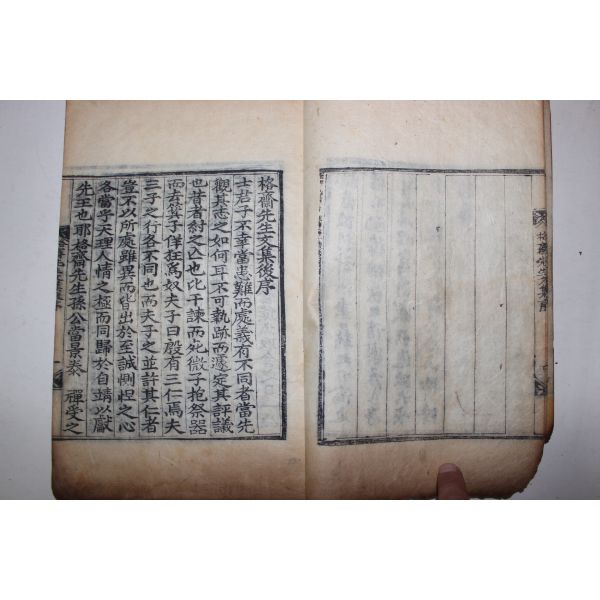 格齋先生文集序
格齋先生文集後序
士君子不幸當患難而處義有不同者當先
觀其志之如何耳不可執跡而遽定其評議
也昔者紂之亡也比干諫而死微子抱祭器
而去箕子佯狂爲奴夫子曰殷有三仁焉夫
三子之行各不同也而夫子之並許其仁者
豈不以所處雖異而皆出於至誠惻怛之心
各當乎天理人情之極而同歸於自靖以獻
先王也耶格齋先生孫公當景泰 禪受之